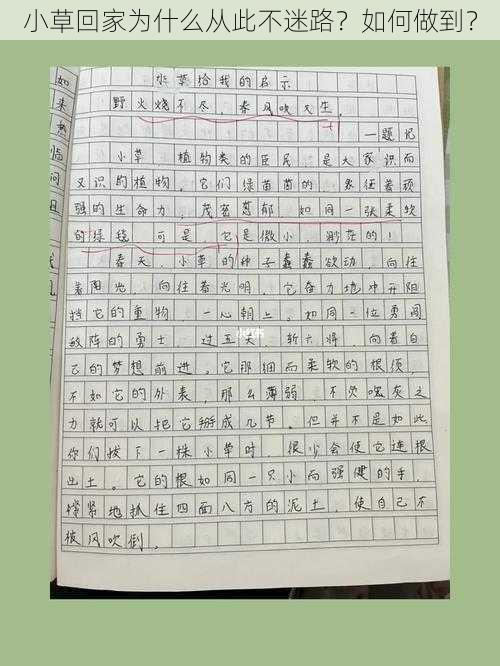 小草回家为什么从此不迷路？如何做到？
小草给我的启示
野火烧不尽，春风吹又生。
—题记
小草，植物类的臣民，是大家识而
又识的植物，它们绿茵茵的，象征着顽
强的生命力，茂密葱郁，如同一张柔软
的绿毯，可是，它是微小，渺茫的！
春天，小草的种子蠢蠢欲动，向往
着阳光，向往着光明，它奋力地冲开阻
挡它的重物，一心朝上。如同一位勇闯
敌阵的勇士，过五关，斩六将，向着自
己的梦想前进。它那细而柔软的根须，
不如它的外表，那么薄弱，不灾吹灰之
力就可以把它掰成几节。但并不是如此
你们拔下一株小草时，很少会使它连根
出土。它的根如同一只小而强健的手，
紧紧地抓住四面八方的泥土，使自己不
被风吹倒。
如
来
临
问